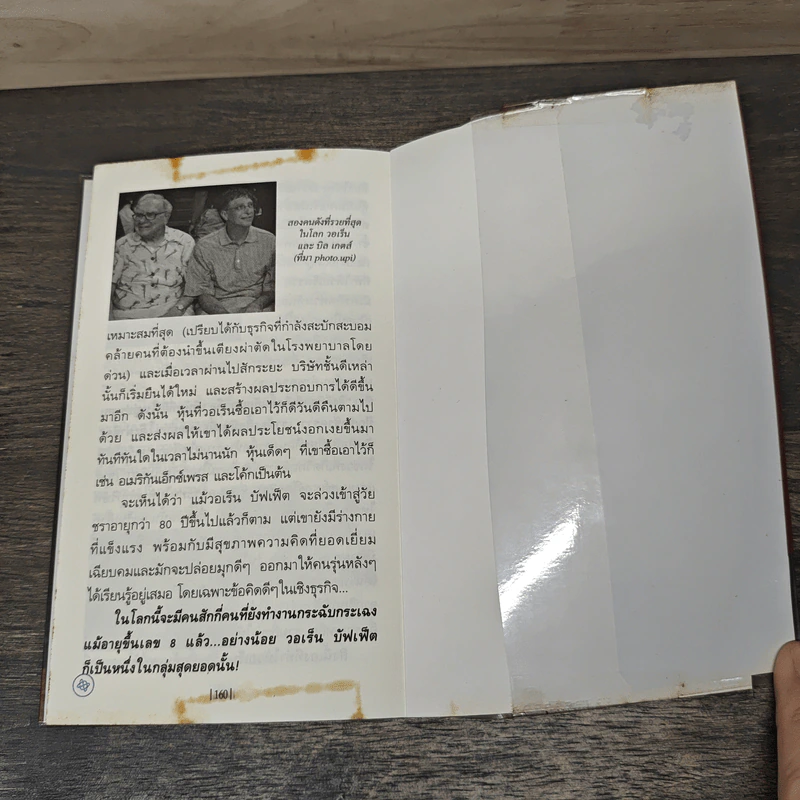 สองคนดังที่รวยที่สุด
ในโลก วอเร็น
และ บิล เกตส์
(ที่มา photo.upi)
เหมาะสมที่สุด (เปรียบได้กับธุรกิจที่กำลังสะบักสะบอม
คล้ายคนที่ต้องนำขึ้นเตียงผ่าตัดในโรงพยาบาลโดย
ด่วน) และเมื่อเวลาผ่านไปสักระยะ บริษัทชั้นดีเหล่า
นั้นก็เริ่มยืนได้ใหม่ และสร้างผลประกอบการได้ดีขึ้น
มาอีก ดังนั้น หุ้นที่วอเร็นซื้อเอาไว้ก็ดีวันดีคืนตามไป
ด้วย และส่งผลให้เขาได้ผลประโยชน์งอกเงยขึ้นมา
ทันทีทันใดในเวลาไม่นานนัก หุ้นเด็ดๆ ที่เขาซื้อเอาไว้ก็
เช่น อเมริกันเอ็กซ์เพรส และโค้กเป็นต้น
จะเห็นได้ว่า แม้วอเร็น บัฟเฟ็ต จะล่วงเข้าสู่วัย
ชราอายุกว่า 80 ปีขึ้นไปแล้วก็ตาม แต่เขายังมีร่างกาย
ที่แข็งแรง พร้อมกับมีสุขภาพความคิดที่ยอดเยี่ยม
เฉียบคมและมักจะปล่อยมุกดีๆ ออกมาให้คนรุ่นหลังๆ
ได้เรียนรู้อยู่เสมอ โดยเฉพาะข้อคิดดีๆในเชิงธุรกิจ...
ในโลกนี้จะมีคนสักกี่คนที่ยังทำงานกระฉับกระเฉง
แม้อายุขึ้นเลข 8 แล้ว...อย่างน้อย วอเร็น บัฟเฟ็ต
ก็เป็นหนึ่งในกลุ่มสุดยอดนั้น!
|160|